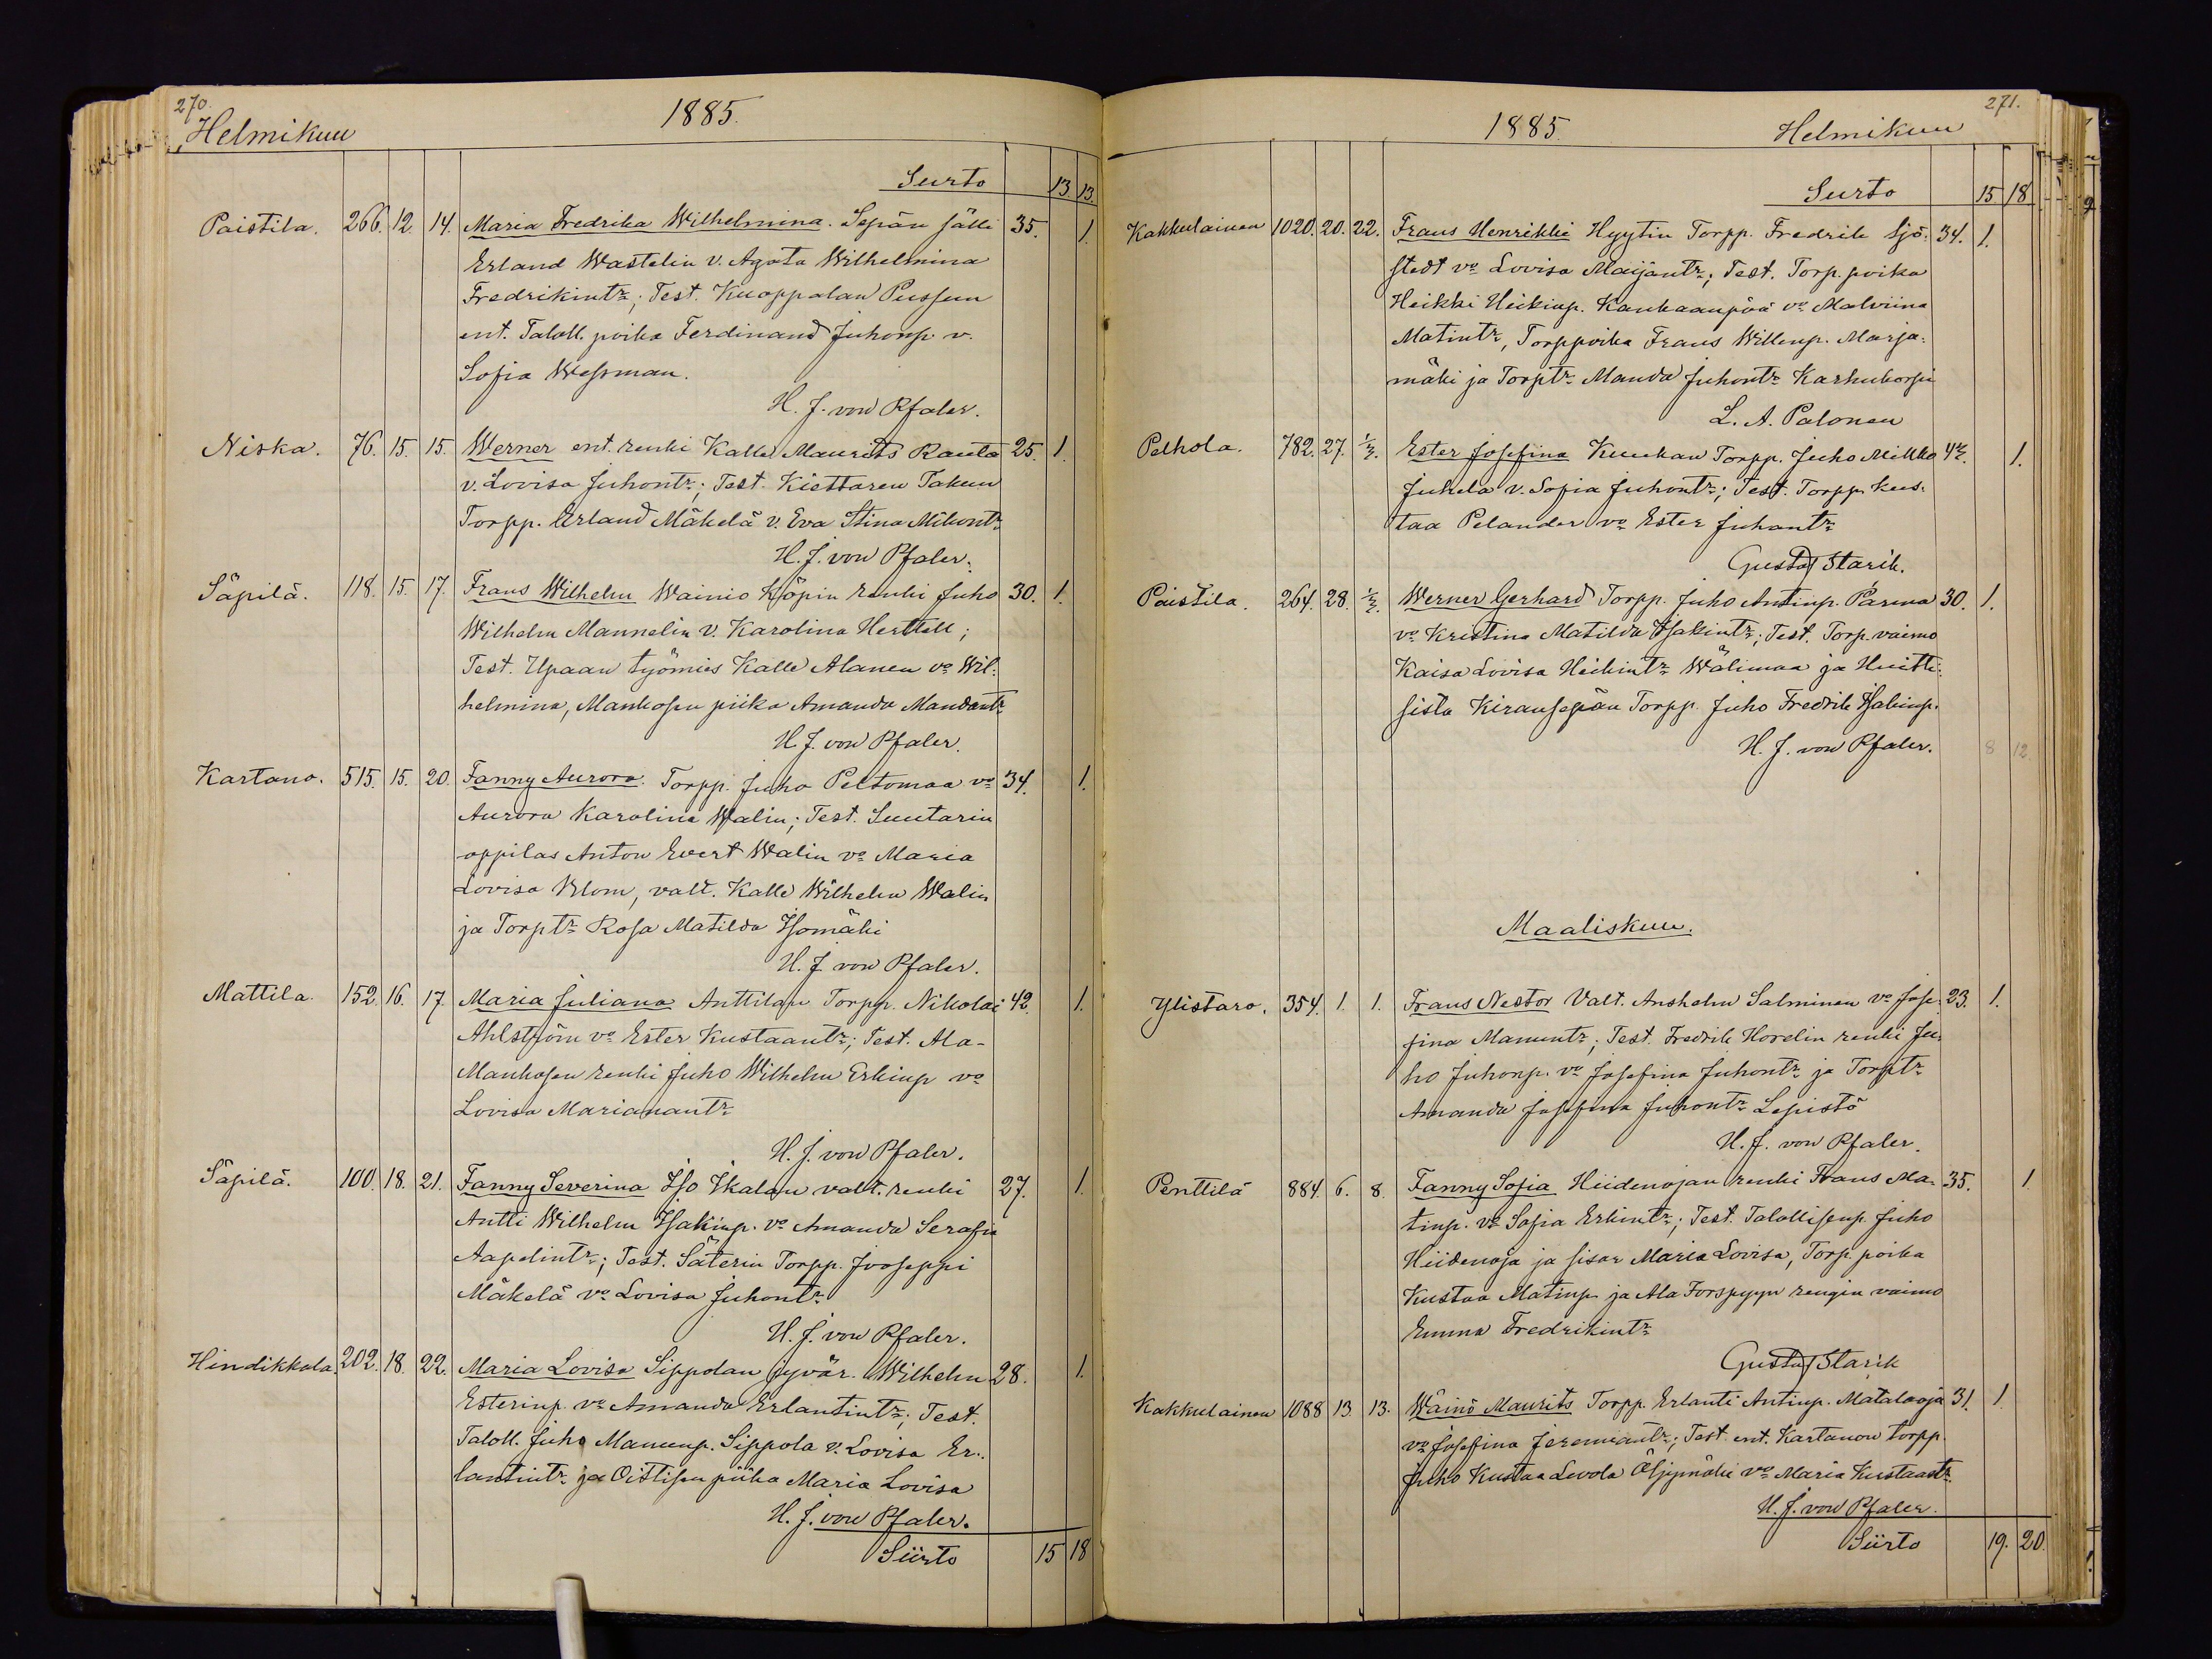 270.
Helmikuu 1885.
Siirto 13 13.
Paistila. 266. 12. 14. Maria Fredrika Wilhelmina. Sepän sälli 35. 1.
Erland Wastelin v. Agata Wilhelmina
Fredrikintr; Test. Kuoppalan Pussun
ent. Taloll. poika Ferdinand Juhonp. v.
Sofia Wessman.
H. J. von Pfaler.
Niska. 76. 15. 15. Werner ent. renki Kalle Maurits Ranta 25. 1.
v. Lovisa Juhontr; Test. Kiettaren Takun
Torpp. Erland Mäkelä v. Eva Stina Mikontr
H. J. von Pfaler.
Säpilä. 118. 15. 17. Frans Wilhelm Wainio Köpin renki Juho 30. 1.
Wilhelm Mannelin v. Karolina Herttell;
Test. Upaan työmies Kalle Alanen vo Wil-
helmina, Mankosen piika Amanda Mandantr
H. J. von Pfaler.
Kartano. 515. 15. 20. Fanny Aurora. Torpp. Juho Peltomaa vo 34. 1.
Aurora Karolina Walin; Test. Suutarin
oppilas Anton Evert Walin vo Maria
Lovisa Blom, valt. Kalle Wilhelm Walin
ja Torptr Rosa Matilda Isomäki
H. J. von Pfaler.
Mattila. 152. 16. 17. Maria Juliana Anttilan Torpp. Nikolai 42. 1.
Ahlström vo Ester Kustaantr; Test. Ala-
Mankosen renki Juho Wilhelm Erkinp vo
Lovisa Marianantr
H. J. von Pfaler.
Säpilä. 100. 18. 21. Fanny Severina Iso Ikalan valt. renki 27. 1.
Antti Wilhelm Isakinp. vo Amanda Serafia
Aapelintr; Test. Säterin Torpp. Jooseppi
Mäkelä vo Lovisa Juhontr
H. J. von Pfaler.
Hindikkala. 202. 18. 22. Maria Lovisa Sippolan jyvär. Wilhelm 28. 1.
Esterinp. vo Amanda Erlantintr; Test.
Taloll. Juho Manunp. Sippola v. Lovisa Er-
lantintr ja Oittisen piika Maria Lovisa
H. J. von Pfaler.
Siirto 15 18
271.
1885. Helmikuu
Siirto 15 18
Kakkulainen 1020. 20. 22. Frans Henrikki Hyytin Torpp. Fredrik Sjö- 34. 1.
stedt vo Lovisa Maijantr; Test. Torp. poika
Heikki Heikinp. Kankaanpää vo Malviina
Matintr, Torppoika Frans Willenp. Marja-
mäki ja Torptr Manda Juhontr Karhukorpi
L. A. Palonen
Pelhola. 782. 27. 1/3. Ester Josefina Kuukan Torpp. Juho Mikko 42. 1.
Juhela v. Sofia Juhontr; Test. Torpp. Kus-
taa Pelander vo Ester Juhantr
Gustaf Starik.
Paistila. 264. 28. 1/3. Werner Gerhard Torpp. Juho Antinp. Pärma 30. 1.
vo Kristina Matilda Isakintr; Test. Torp. vaimo
Kaisa Lovisa Heikintr Wälimaa ja Huitti-
sista Kiransepän Torpp. Juho Fredrik Isakinp.
H. J. von Pfaler. 8 12
Maaliskuu.
Ylistaro. 354. 1. 1. Frans Nestor Valt. Anshelm Salminen vo Jose- 23. 1.
fina Manuntr; Test. Fredrik Horelin renki Ju-
ho Juhonp. vo Josefina Juhontr ja Torptr
Amanda Josefina Juhontr Lepistö
H. J. von Pfaler.
Penttilä 884. 6. 8. Fanny Sofia Hiidenojan renki Frans Ma- 35. 1
tinp. vo Sofia Erkintr; Test. Talollisenp. Juho
Hiidenoja ja sisar Maria Lovisa, Torp. poika
Kustaa Matinp. ja Ala Forspyyn rengin vaimo
Emma Fredrikintr
Gustaf Starik
Kakkulainen 1088 13. 13. Wäinö Maurits Torpp. Erlanti Antinp. Matalaoja 31. 1
vo Josefina Jeremiantr; Test. ent. Kartanon torpp.
Juho Kustaa Levola Öljymäki vo Maria Kustaantr.
H. J. von Pfaler.
Siirto 19. 20.